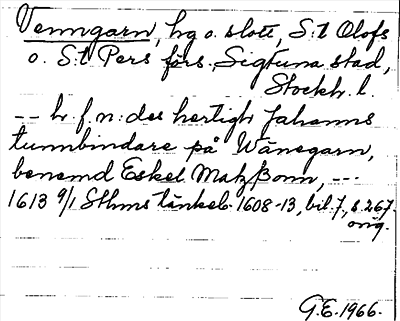 Venngarn, hg o. slott, S:t Olofs
o. S:t Pers förs. Sigtuna stad,
Stockh. l.
-- h. f. n: des hertigh Johanns
tunnbindare på Wänegarn,
benemd Eskel Matzßonn, ---
1613 9/1 Sthms tänkeb. 1608-13, bil. 7, s. 267.
orig.
G.E. 1966.